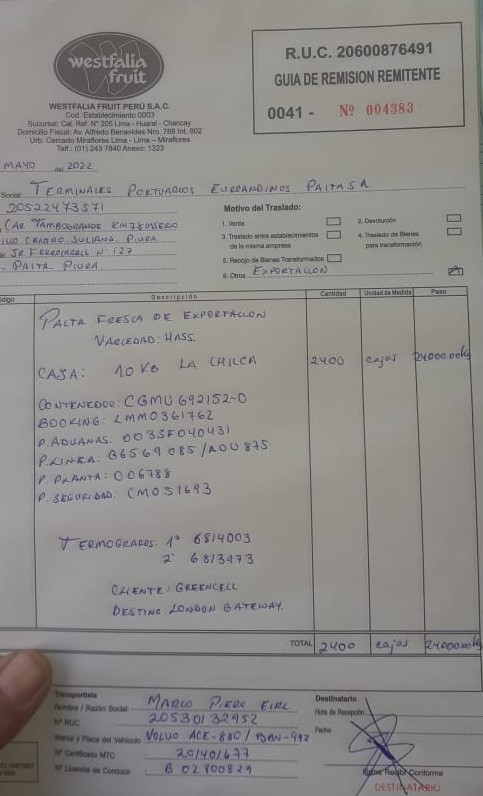 westfalia
fruit
WESTFALIA FRUIT PERÚ S.A.C.
Cod. Establecimiento 0003
Sucursal: Cal. Ref. N° 206 Lima - Huaral - Chancay
Domicilio Fiscal: Av. Alfredo Benavides Nro. 768 Int. 602
Urb. Cercado Miraflores Lima - Lima - Miraflores
Telf.: (01) 243 7840 Anexo: 1223
R.U.C. 20600876491
GUIA DE REMISION REMITENTE
0041 - Nº 004383
MAYO del 2022
Social: TERMINALES PORTUARIOS EUROANDINOS PAITA S.A.
20522473571
CAR TAMBOGRANDE
CENTRO. SULLANA. PIURA
JR FERROCARRIL N° 127
- PAITA - PIURA
Motivo del Traslado:
1. Venta
2. Devolución
3. Traslado entre establecimientos de la misma empresa
4. Traslado de Bienes para transformación
5. Recojo de Bienes Transformados
6. Otros EXPORTACION
Descripción Cantidad Unidad de Medida Peso
PALTA FRESCA DE EXPORTACION
VARIEDAD: HASS.
CAJA: 10 KG LA CHILCA 2400 cajas 24000.00kg
CONTENEDOR: CGMU 692152-0
BOOKING: LMM0361762
P. ADUANAS: 003SF040431
P. LINEA: G6569085/ADU875
P. PLANTA: 006788
P. SEGURIDAD: CM051693
TERMOGRADOS: 1° 6814003
2° 6813473
CLIENTE: GREENCELL
DESTINO: LONDON GATEWAY.
TOTAL 2400 cajas 24000.00kg
Transportista
Nombre / Razón Social: MARCO PIERO EIRL
N° RUC 20530132952
Marca y Placa del Vehículo VOLVO ACE-880 / BAN-992
N° Certificado MTC 201401677
N° Licencia de Conducir B 02800829
Destinatario
Hora de Recepción:
Fecha
Recibí Conforme
DESTINATARIO